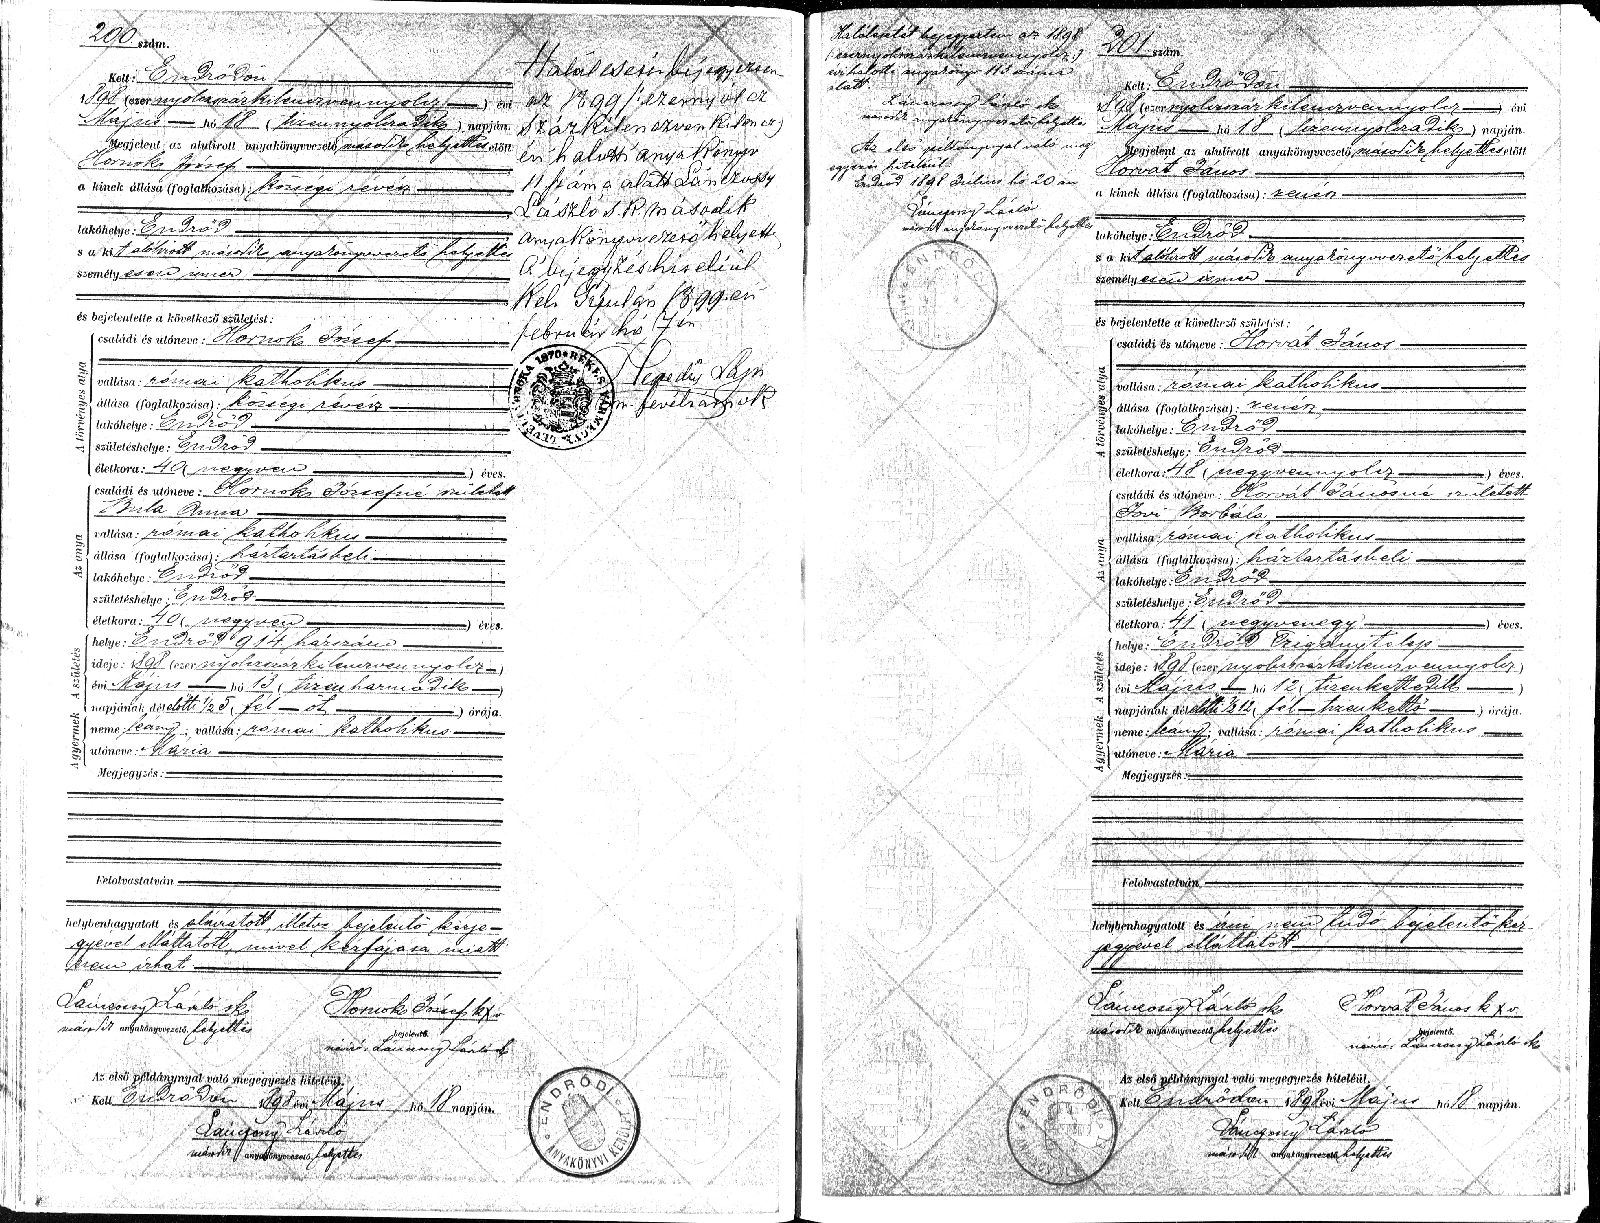 200 szám.
Kelt: Endrődön
1898 (ezer nyolcszázkilenczvennyolcz) évi
Május hó 18 (tizennyolczadik) napján.
Megjelent az alulirott anyakönyvvezető második helyettes előtt
Hornok József
a kinek állása (foglalkozása): községi révész
lakóhelye: Endrőd
s a kit alólirott második anyakönyvvezető helyettes
személyesen ismer
és bejelentette a következő születést:
A törvényes atya
családi és utóneve: Hornok József
vallása: római katholikus
állása (foglalkozása): községi révész
lakóhelye: Endrőd
születéshelye: Endrőd
életkora: 40 (negyven) éves.
Az anya
családi és utóneve: Hornok Józsefné született
Bula Anna
vallása: római katholikus
állása (foglalkozása): háztartásbeli
lakóhelye: Endrőd
születéshelye: Endrőd
életkora: 40 (negyven) éves.
A születés
helye: Endrőd 914 házszám
ideje: 1898 (ezer nyolczszázkilenczvennyolcz)
évi Május hó 13 (tizenharmadik)
napjának délelőtti 1/2 5 (fél öt) órája.
A gyermek
neme: leány; vallása: római katholikus
utóneve: Mária
Megjegyzés:
Felolvastatván
helybenhagyatott és aláíratott, illetve bejelentő kézje-
gyével elláttatott, mivel kézfájása miatt
nem írhat.
Lánczony László sk
második anyakönyvvezető helyettes
Hornok József k x v
bejelentő.
névíró: Lánczony László sk
Az első példánynyal való megegyezés hiteléül.
Kelt Endrődön 1898 évi Május hó 18 napján.
Lánczony László
második anyakönyvvezető helyettes
ENDRŐDI
ANYAKÖNYVI KERÜLET
Halálesését bejegyeztem
az 1899 (ezernyolcz
százkilenczvenkilencz)
évi halotti anyakönyv
11 száma alatt Lánczony
László s.k. második
anyakönyvvezető helyett.
A bejegyzés hiteléül
Kelt Gyulán 1899 évi
február hó 17én
Hegedüs Lajos
m. levéltárnok
BÉKÉS VÁRMEGYE LEVÉLTÁRNOKA 1870
Halálesetét bejegyeztem az 1898
(ezernyolczszázkilenczvennyolcz)
évi halotti anyakönyv 113 száma
alatt.
Lánczony László sk
második anyakönyvvezető helyettes
Az első példánynyal való meg
egyezés hiteléül.
Endrőd 1898 Július hó 20 án
Lánczony László
második anyakönyvvezető helyettes
ENDRŐDI
201 szám.
Kelt: Endrődön
1898 (ezer nyolczszázkilenczvennyolcz) évi
Május hó 18 (tizennyolczadik) napján.
Megjelent az alulirott anyakönyvvezető második helyettes előtt
Horvát János
a kinek állása (foglalkozása): zenész
lakóhelye: Endrőd
s a kit alólirott második anyakönyvvezető helyettes
személyesen ismer
és bejelentette a következő születést:
A törvényes atya
családi és utóneve: Horvát János
vallása: római katholikus
állása (foglalkozása): zenész
lakóhelye: Endrőd
születéshelye: Endrőd
életkora: 48 (negyvennyolcz) éves.
Az anya
családi és utóneve: Horvát Jánosné született
Borbála
vallása: római katholikus
állása (foglalkozása): háztartásbeli
lakóhelye: Endrőd
születéshelye: Endrőd
életkora: 41 (negyvenegy) éves.
A születés
helye: Endrőd Czigánytelep
ideje: 1898 (ezer nyolczszázkilenczvennyolcz)
évi Május hó 12 (tizenkettedik)
napjának délelőtti 1/2 12 (fél tizenkettő) órája.
A gyermek
neme: leány; vallása: római katholikus
utóneve: Mária
Megjegyzés:
Felolvastatván,
helybenhagyatott és írni nem tudó bejelentő kéz-
jegyével elláttatott
Lánczony László sk
második anyakönyvvezető helyettes
Horvát János k x v.
bejelentő.
névíró: Lánczony László sk
Az első példánynyal való megegyezés hiteléül.
Kelt Endrődön 1898 évi Május hó 18 napján.
Lánczony László
második anyakönyvvezető helyettes
ENDRŐDI